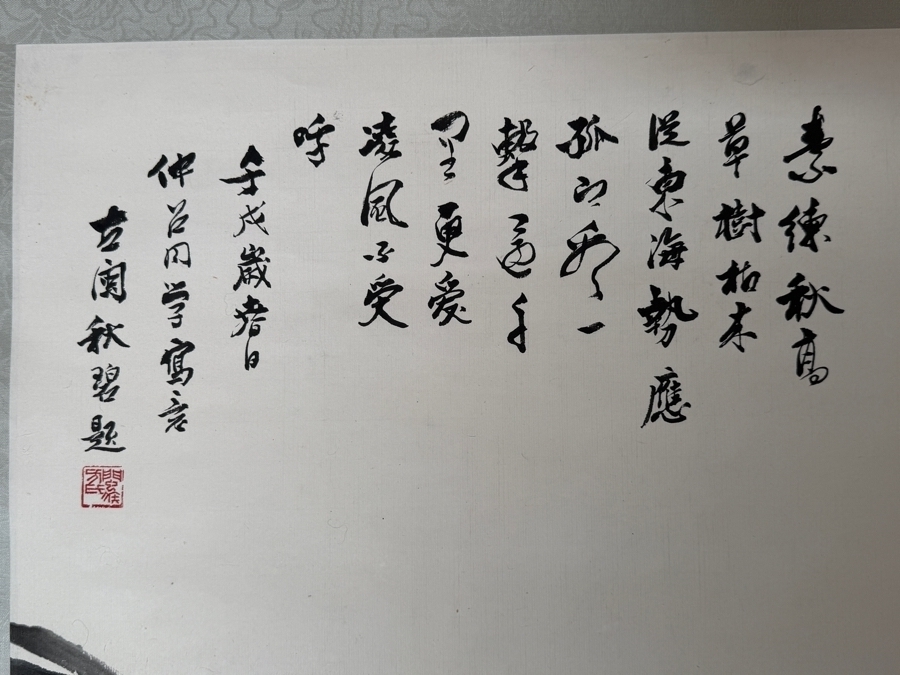 素練秋高
草樹枯来
從東海勢應
孤即看一
擊千
里更愛
凌風不受
呼
壬戌歲春日
仲呂同学寫意
古閩秋碧題